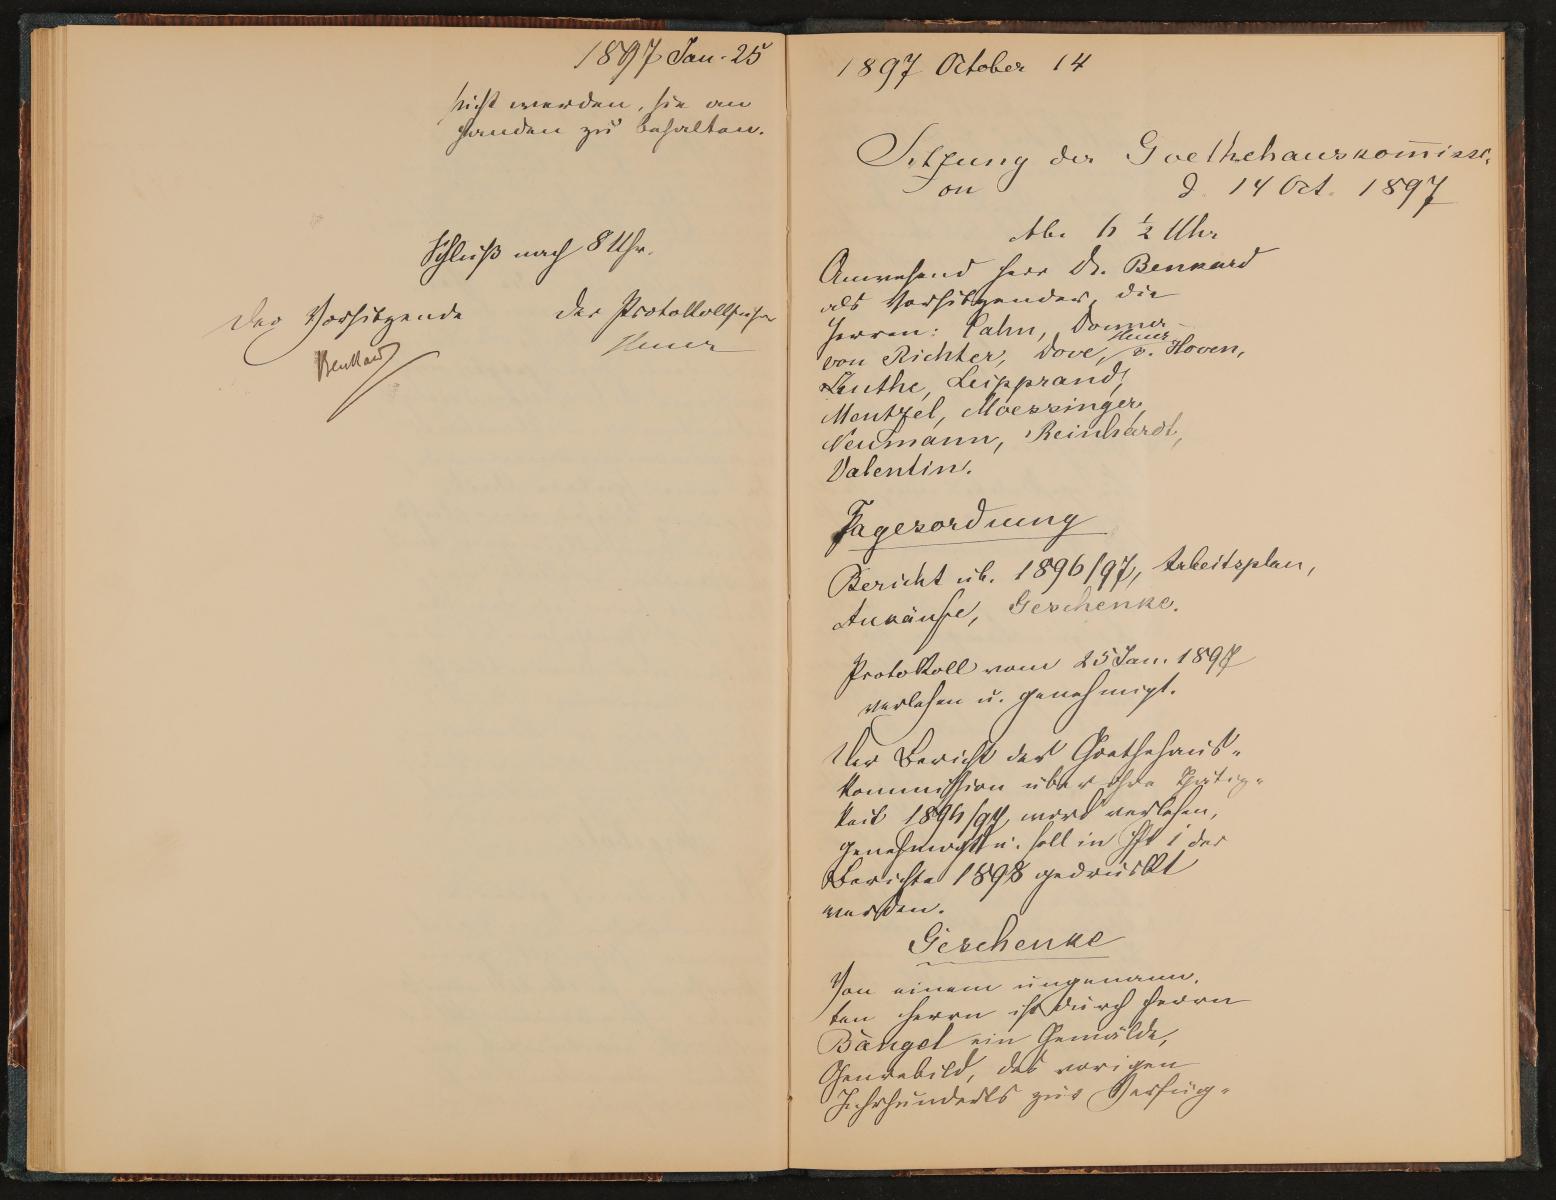 1897 Jan. 25
sucht werden, sie an
handen zu behalten.
Schluß nach 8 Uhr.
Der Vorsitzende der Protokollführer
Benkard Heuer
1897 October 14
Sitzung der Goethehauskom̅issi-
on d. 14 Oct. 1897
Abe 6 ½ Uhr
Anwesend Herr Dr. Benkard
als Vorsitzender, die
Herren: Cahn, Donner-
von Richter, Dove, Heuer v. Hoven,
Luthe, Leipprand,
Mentzel, Moessinger,
Neumann, Reinhardt,
Valentin.
Tagesordnung
Bericht üb. 1896/97, Arbeitsplan,
Ankäufe, Geschenke.
Protokoll vom 25 Jan. 1897
verlesen u. genehmigt.
Der Bericht der Goethehaus-
kommission über ihre Thätig-
keit 1896/97, wird verlesen,
genehmigt u. soll in Hft 1 der
Berichte 1898 gedruckt
werden.
Geschenke
Von einem ungenann-
ten Herrn ist durch Herrn
Bangel ein Gemälde,
Genrebild, des vorigen
Jahrhunderts zur Verfüg-